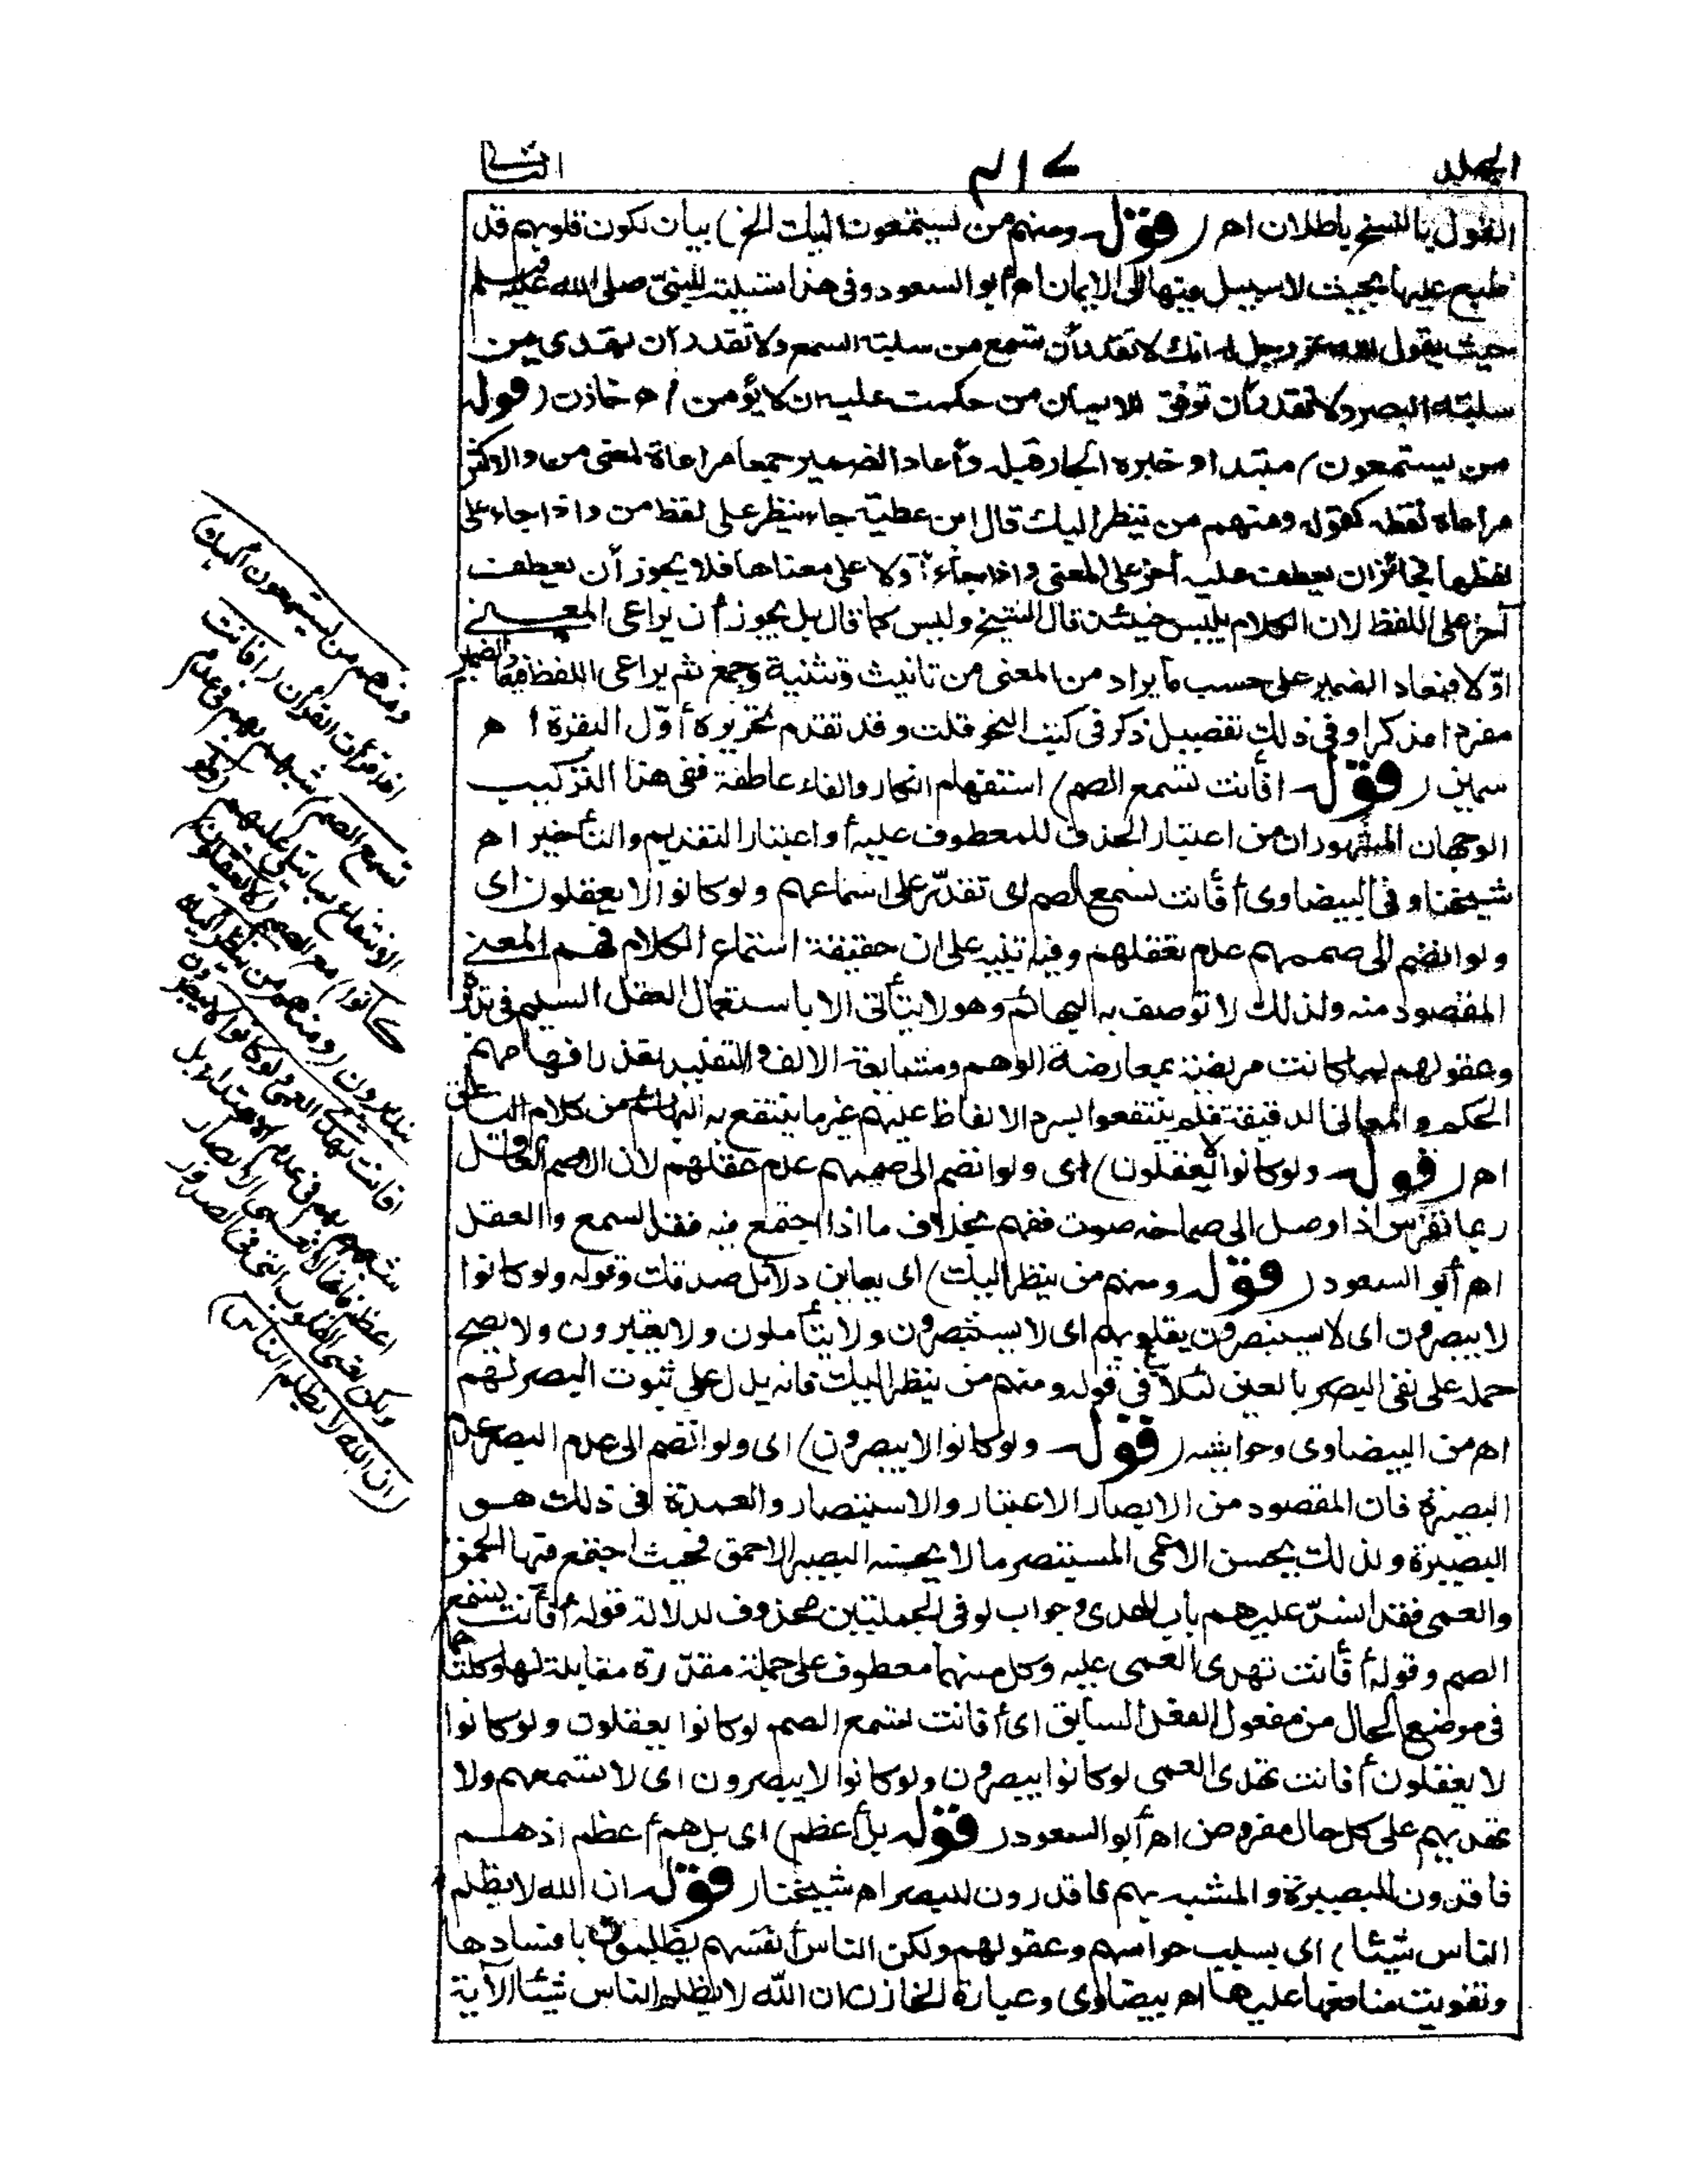 المجلد
٤١٧
الثانى
القول بالنسخ باطلان اهـ (قوله ومنهم من يستمعون اليك الخ) بيان لكون قلوبهم قد
طبع عليها بحيث لا سبيل منها الى الايمان اهـ أبو السعود وفى هذا تسلية للنبىّ صلى الله عليه وسلم
حيث يقول الله عز وجل له انك لا تقدر أن تسمع من سلبته السمع ولا تقدر أن تهدى من
سلبته البصر ولا تقدر أن توفق للايمان من حكمت عليه ان لا يؤمن اهـ خازن (قوله
من يستمعون) مبتدا وخبره الجار قبله وأعاد الضمير جمعا مراعاة لمعنى من والاكثر
مراعاة لفظه كقوله ومنهم من ينظر اليك قال ابن عطية جاء ينظر على لفظ من واذا جاء على
لفظها فجائز ان يعطف عليه آخر على المعنى واذا جاء أولا على معناها فلا يجوز أن يعطف
آخر على اللفظ لان الكلام يلبس حينئذ قال الشيخ وليس كما قال بل يجوز أن يراعى المعنى
اوّلا فيعاد الضمير على حسب ما يراد من المعنى من تانيث وتثنية وجمع ثم يراعى اللفظ فيعاد الضمير
مفردا مذكرا وفى ذلك تفصيل ذكر فى كتب النحو قلت وقد تقدم تحريره أوّل البقرة اهـ
سمين (قوله أفأنت تسمع الصم) استفهام انكار والفاء عاطفة ففى هذا التركيب
الوجهان المشهوران من اعتبار الحذف للمعطوف عليه أو اعتبار التقديم والتأخير اهـ
شيخنا وفى البيضاوى أفأنت تسمع الصم اى تقدّر على اسماعهم ولو كانوا لا يعقلون اى
ولو انضم الى صممهم عدم تعقلهم وفيه تنبيه على ان حقيقة استماع الكلام فهم المعنى
المقصود منه ولذلك لا توصف به البهائم وهو لا يتأتى الا باستعمال العقل السليم فى تدبره
وعقولهم لما كانت مريضة بمعارضة الوهم ومتابعة الالف والتقليد تعذر افهامهم
الحكم والمعانى الدقيقة فلم ينتفعوا بسرد الالفاظ عليهم غير ما ينتفع به البهائم من كلام الناعق
اهـ (قوله ولو كانوا لا يعقلون) اى ولو انضم الى صممهم عدم عقلهم لان الاصم العاقل
ربما تفرس اذا وصل الى صماخه صوت ففهم بخلاف ما اذا اجتمع فيه فقد السمع والعقل
اهـ أبو السعود (قوله ومنهم من ينظر اليك) اى يعاين دلائل صدقك وقوله ولو كانوا
لا يبصرون اى لا يستبصرون بقلوبهم اى لا يستبصرون ولا يتأملون ولا يعتبرون ولا يصح
حمله على نفى البصر بالعين لئلا فى قوله ومنهم من ينظر اليك فانه يدل على ثبوت البصر لهم
اهـ من البيضاوى وحواشيه (قوله ولو كانوا لا يبصرون) اى ولو انضم الى عدم البصر عدم
البصيرة فان المقصود من الابصار الاعتبار والاستبصار والعمدة فى ذلك هو
البصيرة ولذلك يحسن الاعمى المستبصر ما لا يحسنه البصير الاحمق فحيث اجتمع فيها الحمق
والعمى فقد انسدّ عليهم باب الهدى وجواب لو فى الجملتين محذوف لدلالة قوله أفأنت تسمع
الصم وقوله أفأنت تهدى العمى عليه وكل منهما معطوف على جملة مقدّرة مقابلة لها وكلتاهما
فى موضع الحال من مفعول الفعل السابق اى أفانت تسمع الصم لو كانوا يعقلون ولو كانوا
لا يعقلون أفانت تهدى العمى لو كانوا يبصرون ولو كانوا لا يبصرون اى لا تسمعهم ولا
تهديهم على كل حال مفروض اهـ أبو السعود (قوله بل أعظم) اى بل هم أعظم اذ هم
فاقدون للبصيرة والمشبه بهم فاقدون للبصر اهـ شيخنا (قوله ان الله لا يظلم
الناس شيئا) اى بسلب حواسهم وعقولهم ولكن الناس أنفسهم يظلمون بافسادها
وتفويت منافعها عليها اهـ بيضاوى وعبارة الخازن ان الله لا يظلم الناس شيئا الآية
ومنهم من يستمعون اليك)
اذا قرأت القرآن (أفانت
تسمع الصم) شبههم بهم فى عدم
الانتفاع بما يتلى عليهم (ولو
كانوا) مع الصمم (لا يعقلون)
يتدبرون (ومنهم من ينظر اليك
افانت تهدى العمى ولو كانوا لا يبصرون
شبههم بهم فى عدم الاهتداء بل
اعظم فانها لا تعمى الابصار
ولكن تعمى القلوب التى فى الصدور
(ان الله لا يظلم الناس)